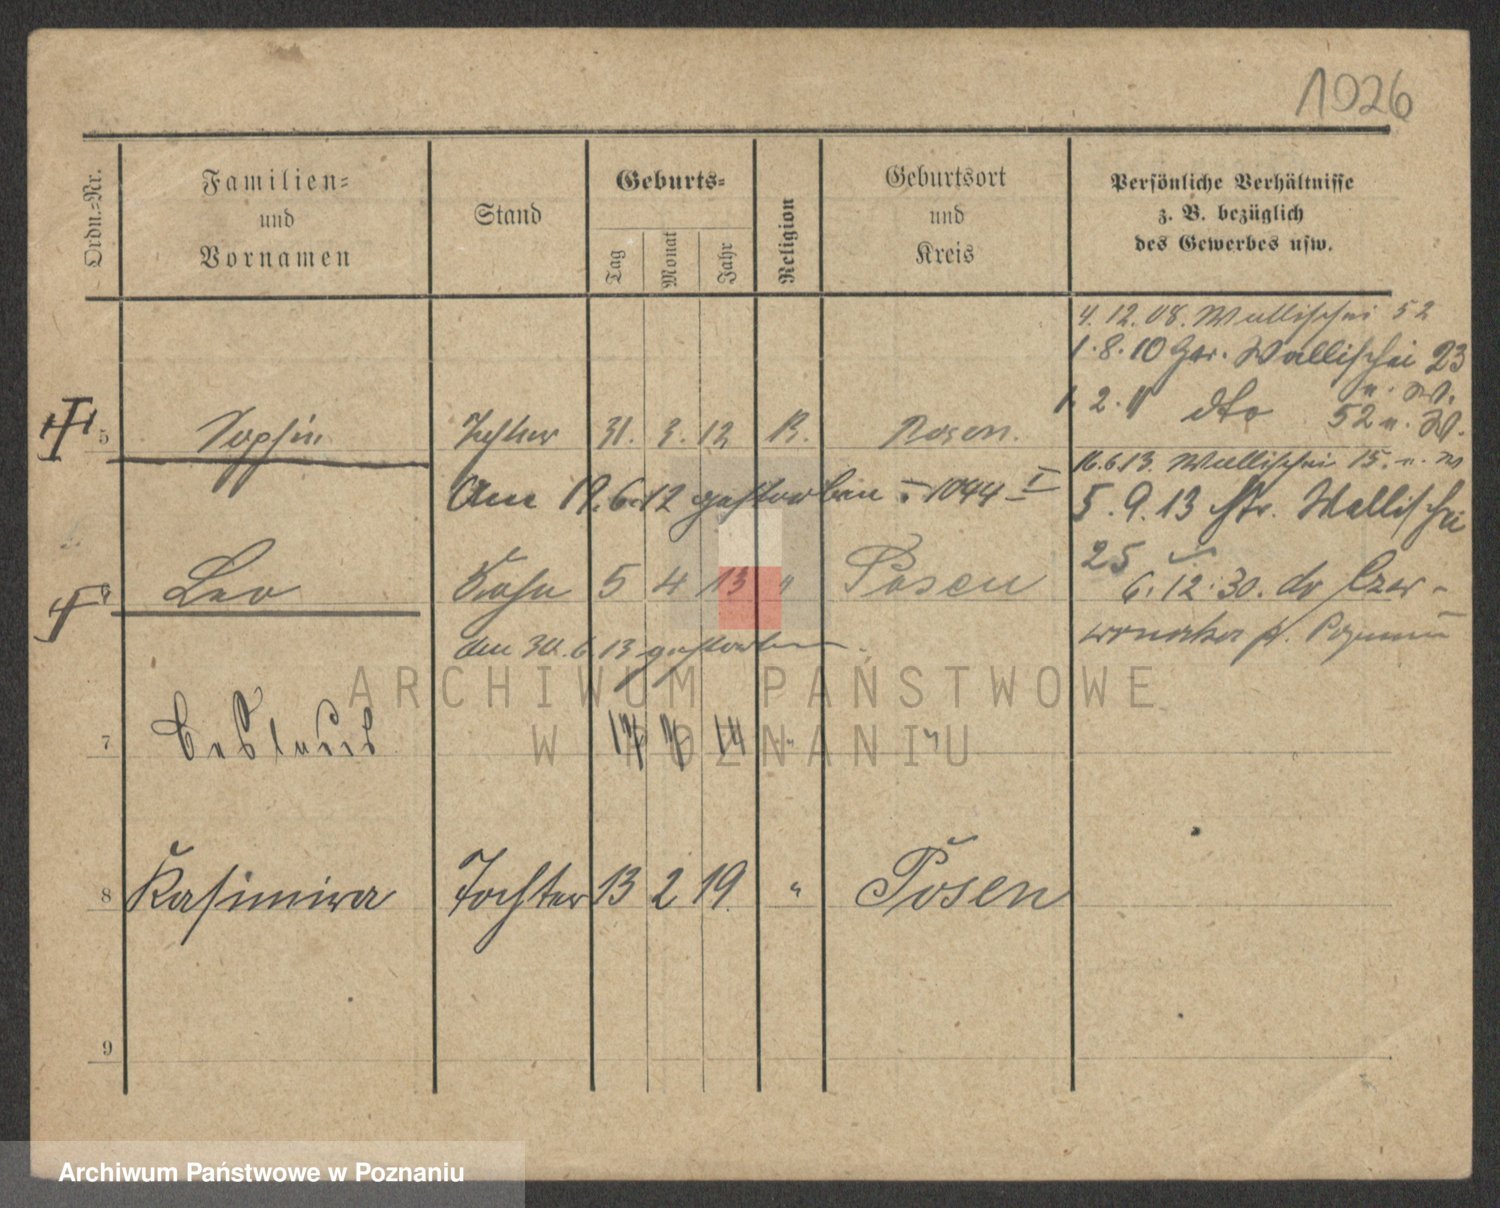 1026
Ordn.-Nr.
Familien-
und
Vornamen
Stand
Geburts-
Tag
Monat
Jahr
Religion
Geburtsort
und
Kreis
Persönliche Verhältnisse
z. B. bezüglich
des Gewerbes usw.
4. 12. 08. Wallischei 52
1. 8. 10 Wallischei 23
u. W.
1. 2. 11 dto 52 u. W.
5 Sophie Tochter 31. 3. 12 R. Posen.
16.6.13. Wallischei 15.
Am 19.6.12 gestorben 1044 I
5. 9. 13 Wallischei
25
Leo Sohn 5 4 13 " Posen
6. 12. 30.
Am 30.6.13 gestorben
ARCHIWUM PAŃSTWOWE
W POZNANIU
7 14 "
8 Kasimira Tochter 13 2 19. " Posen
9
Archiwum Państwowe w Poznaniu